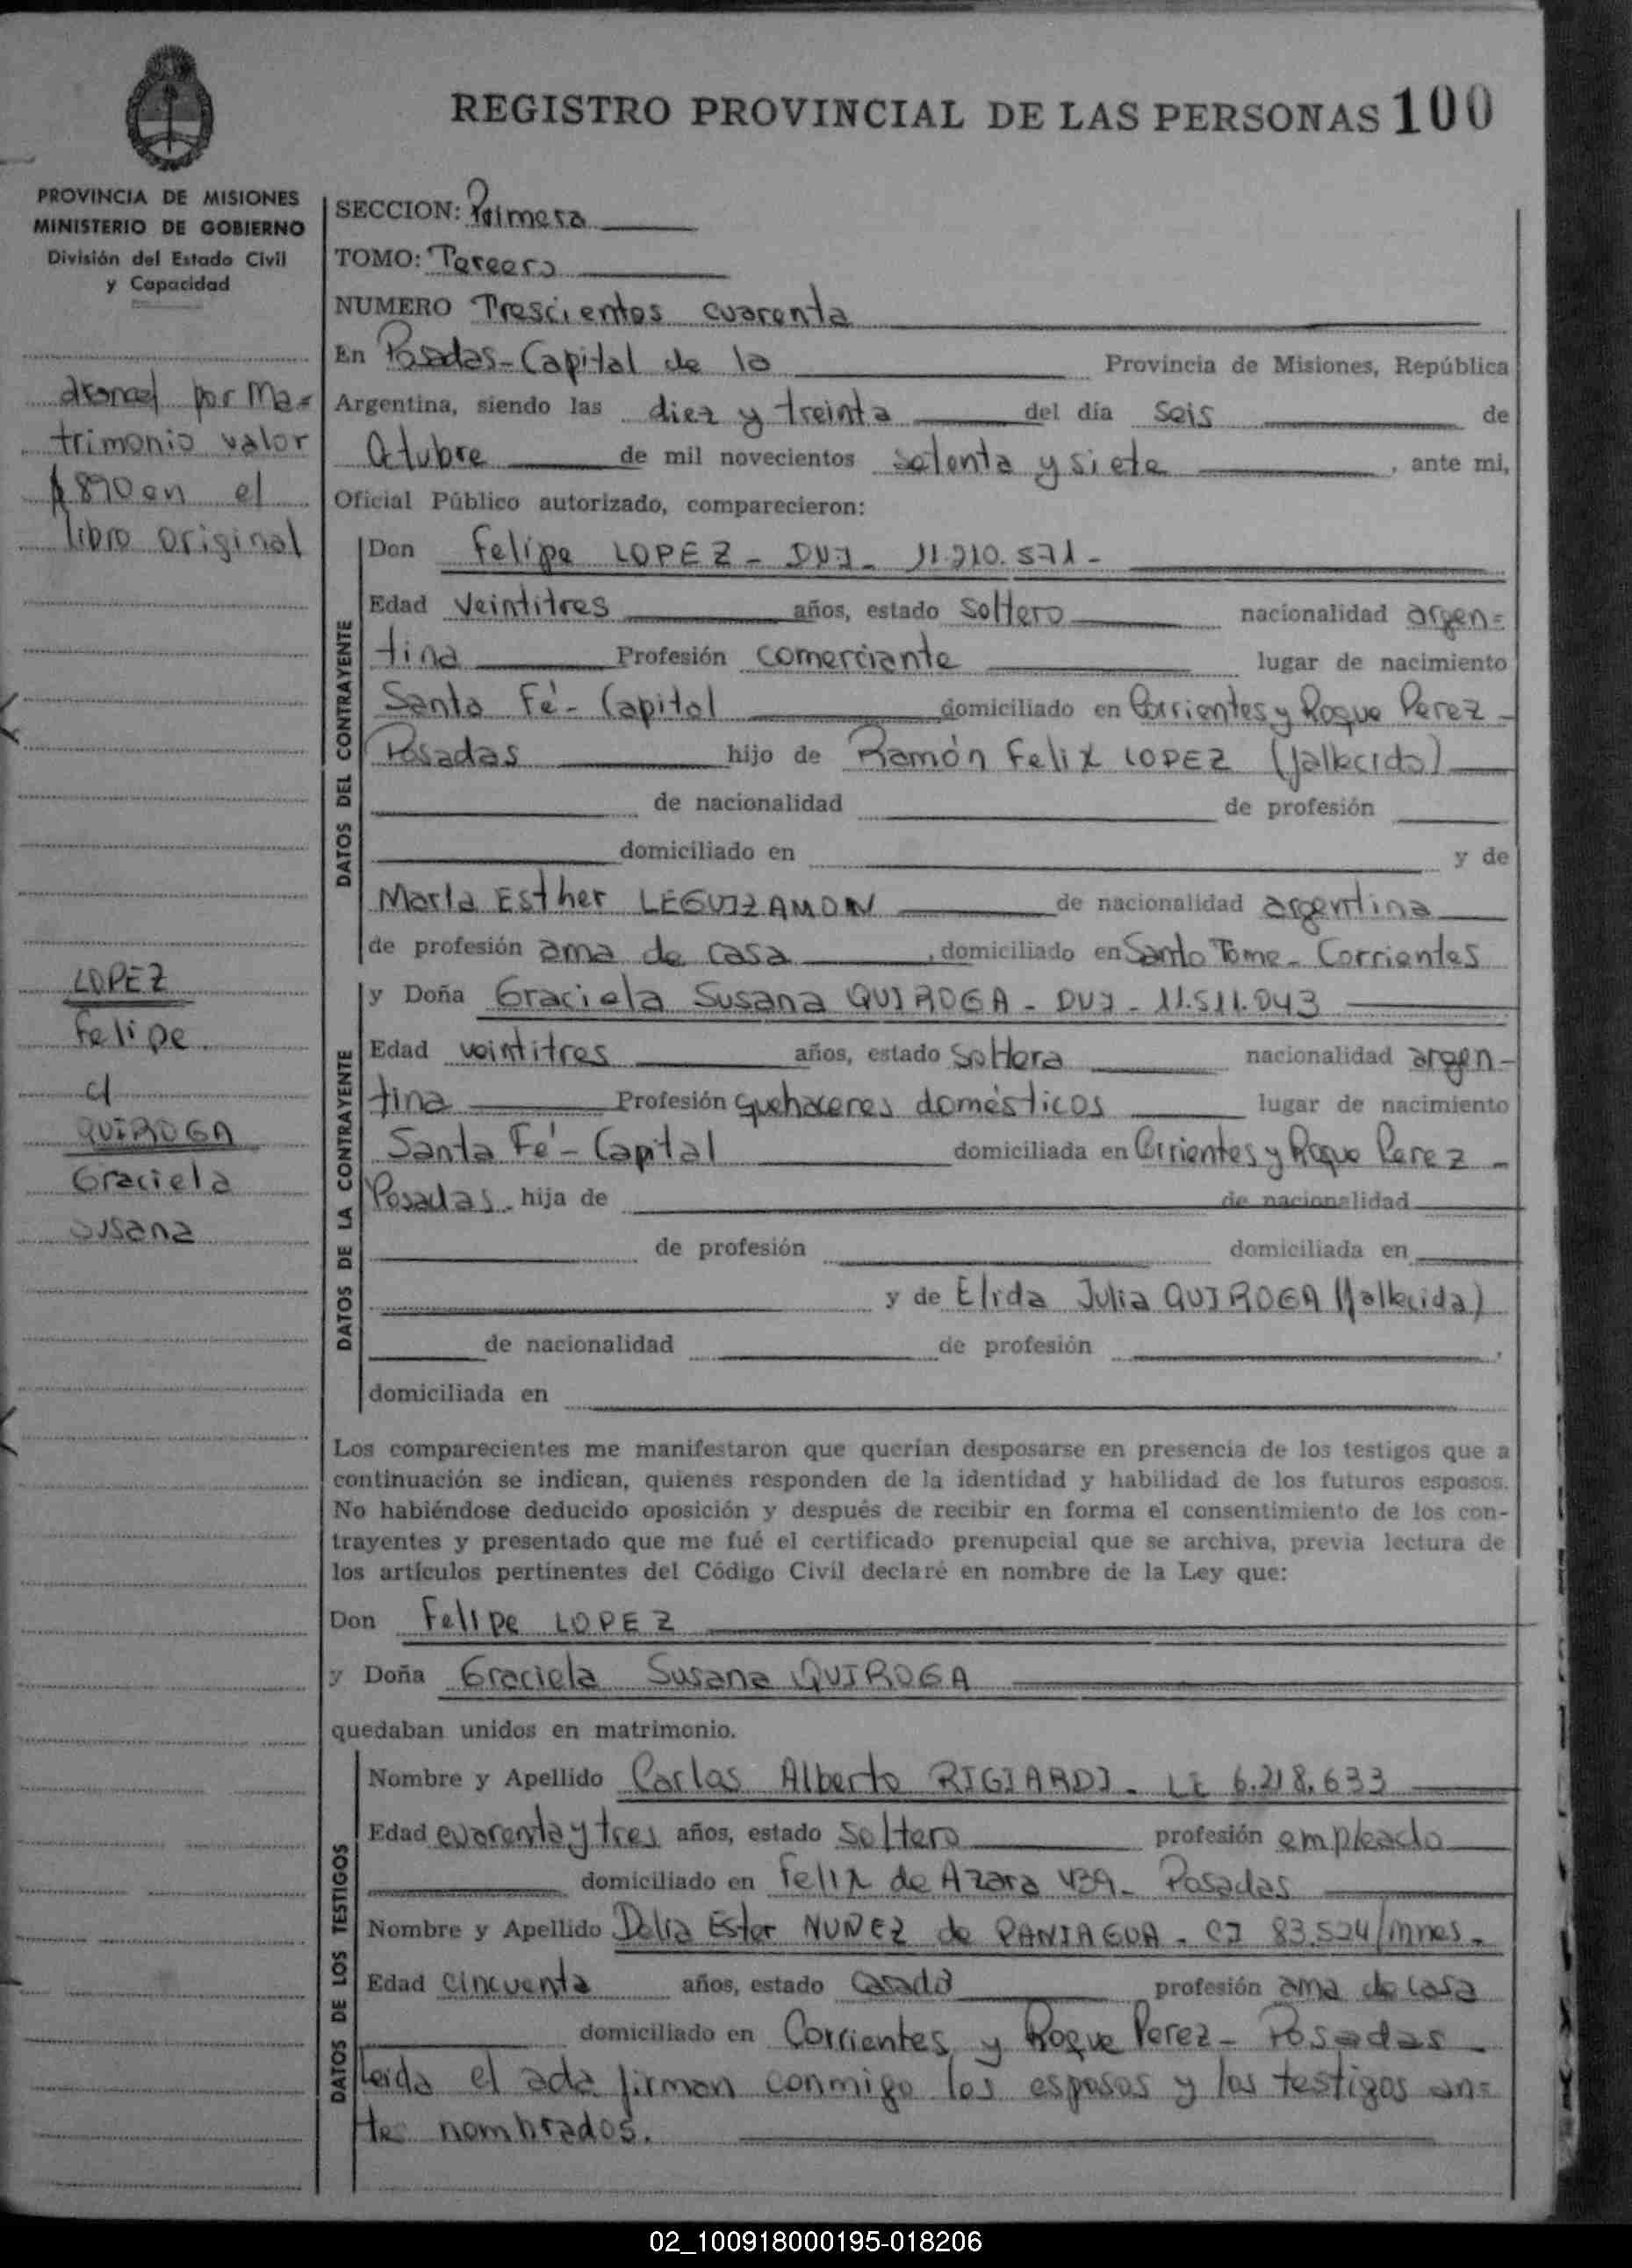 REGISTRO PROVINCIAL DE LAS PERSONAS 100
PROVINCIA DE MISIONES
MINISTERIO DE GOBIERNO
División del Estado Civil
y Capacidad
arancel por Ma=
trimonio valor
$890 en el
libro original
LOPEZ
Felipe
c/
QUIROGA
Graciela
Susana
SECCION: Primera
TOMO: Tercero
NUMERO Trescientos cuarenta
En Posadas-Capital de la Provincia de Misiones, República
Argentina, siendo las diez y treinta del día seis de
Octubre de mil novecientos setenta y siete, ante mi,
Oficial Público autorizado, comparecieron:
DATOS DEL CONTRAYENTE
Don Felipe LOPEZ - DUI - 11.210.571-
Edad veintitres años, estado soltero nacionalidad argen=
tina Profesión comerciante lugar de nacimiento
Santa Fé - Capital domiciliado en Corrientes y Roque Perez -
Posadas hijo de Ramón Felix LOPEZ (fallecido)
de nacionalidad de profesión
domiciliado en y de
María Esther LEGUIZAMON de nacionalidad argentina
de profesión ama de casa, domiciliado en Santo Tome - Corrientes
DATOS DE LA CONTRAYENTE
y Doña Graciela Susana QUIROGA - DUI - 11.511.043
Edad veintitres años, estado soltera nacionalidad argen-
tina Profesión Quehaceres domésticos lugar de nacimiento
Santa Fé - Capital domiciliada en Corrientes y Roque Perez -
Posadas. hija de de nacionalidad
de profesión domiciliada en
y de Elida Julia QUIROGA (fallecida)
de nacionalidad de profesión ,
domiciliada en
Los comparecientes me manifestaron que querían desposarse en presencia de los testigos que a
continuación se indican, quienes responden de la identidad y habilidad de los futuros esposos.
No habiéndose deducido oposición y después de recibir en forma el consentimiento de los con-
trayentes y presentado que me fué el certificado prenupcial que se archiva, previa lectura de
los artículos pertinentes del Código Civil declaré en nombre de la Ley que:
Don Felipe LOPEZ
y Doña Graciela Susana QUIROGA
quedaban unidos en matrimonio.
DATOS DE LOS TESTIGOS
Nombre y Apellido Carlos Alberto RIGIARDI - LE 6.218.633
Edad cuarenta y tres años, estado soltero profesión empleado
domiciliado en Felix de Azara 439 - Posadas
Nombre y Apellido Delia Ester NUÑEZ de PANIAGUA - CI 83.524/mnes.
Edad cincuenta años, estado casada profesión ama de casa
domiciliado en Corrientes y Roque Perez - Posadas
Leida el acta firman conmigo los esposos y los testigos an=
tes nombrados.
02_100918000195-018206